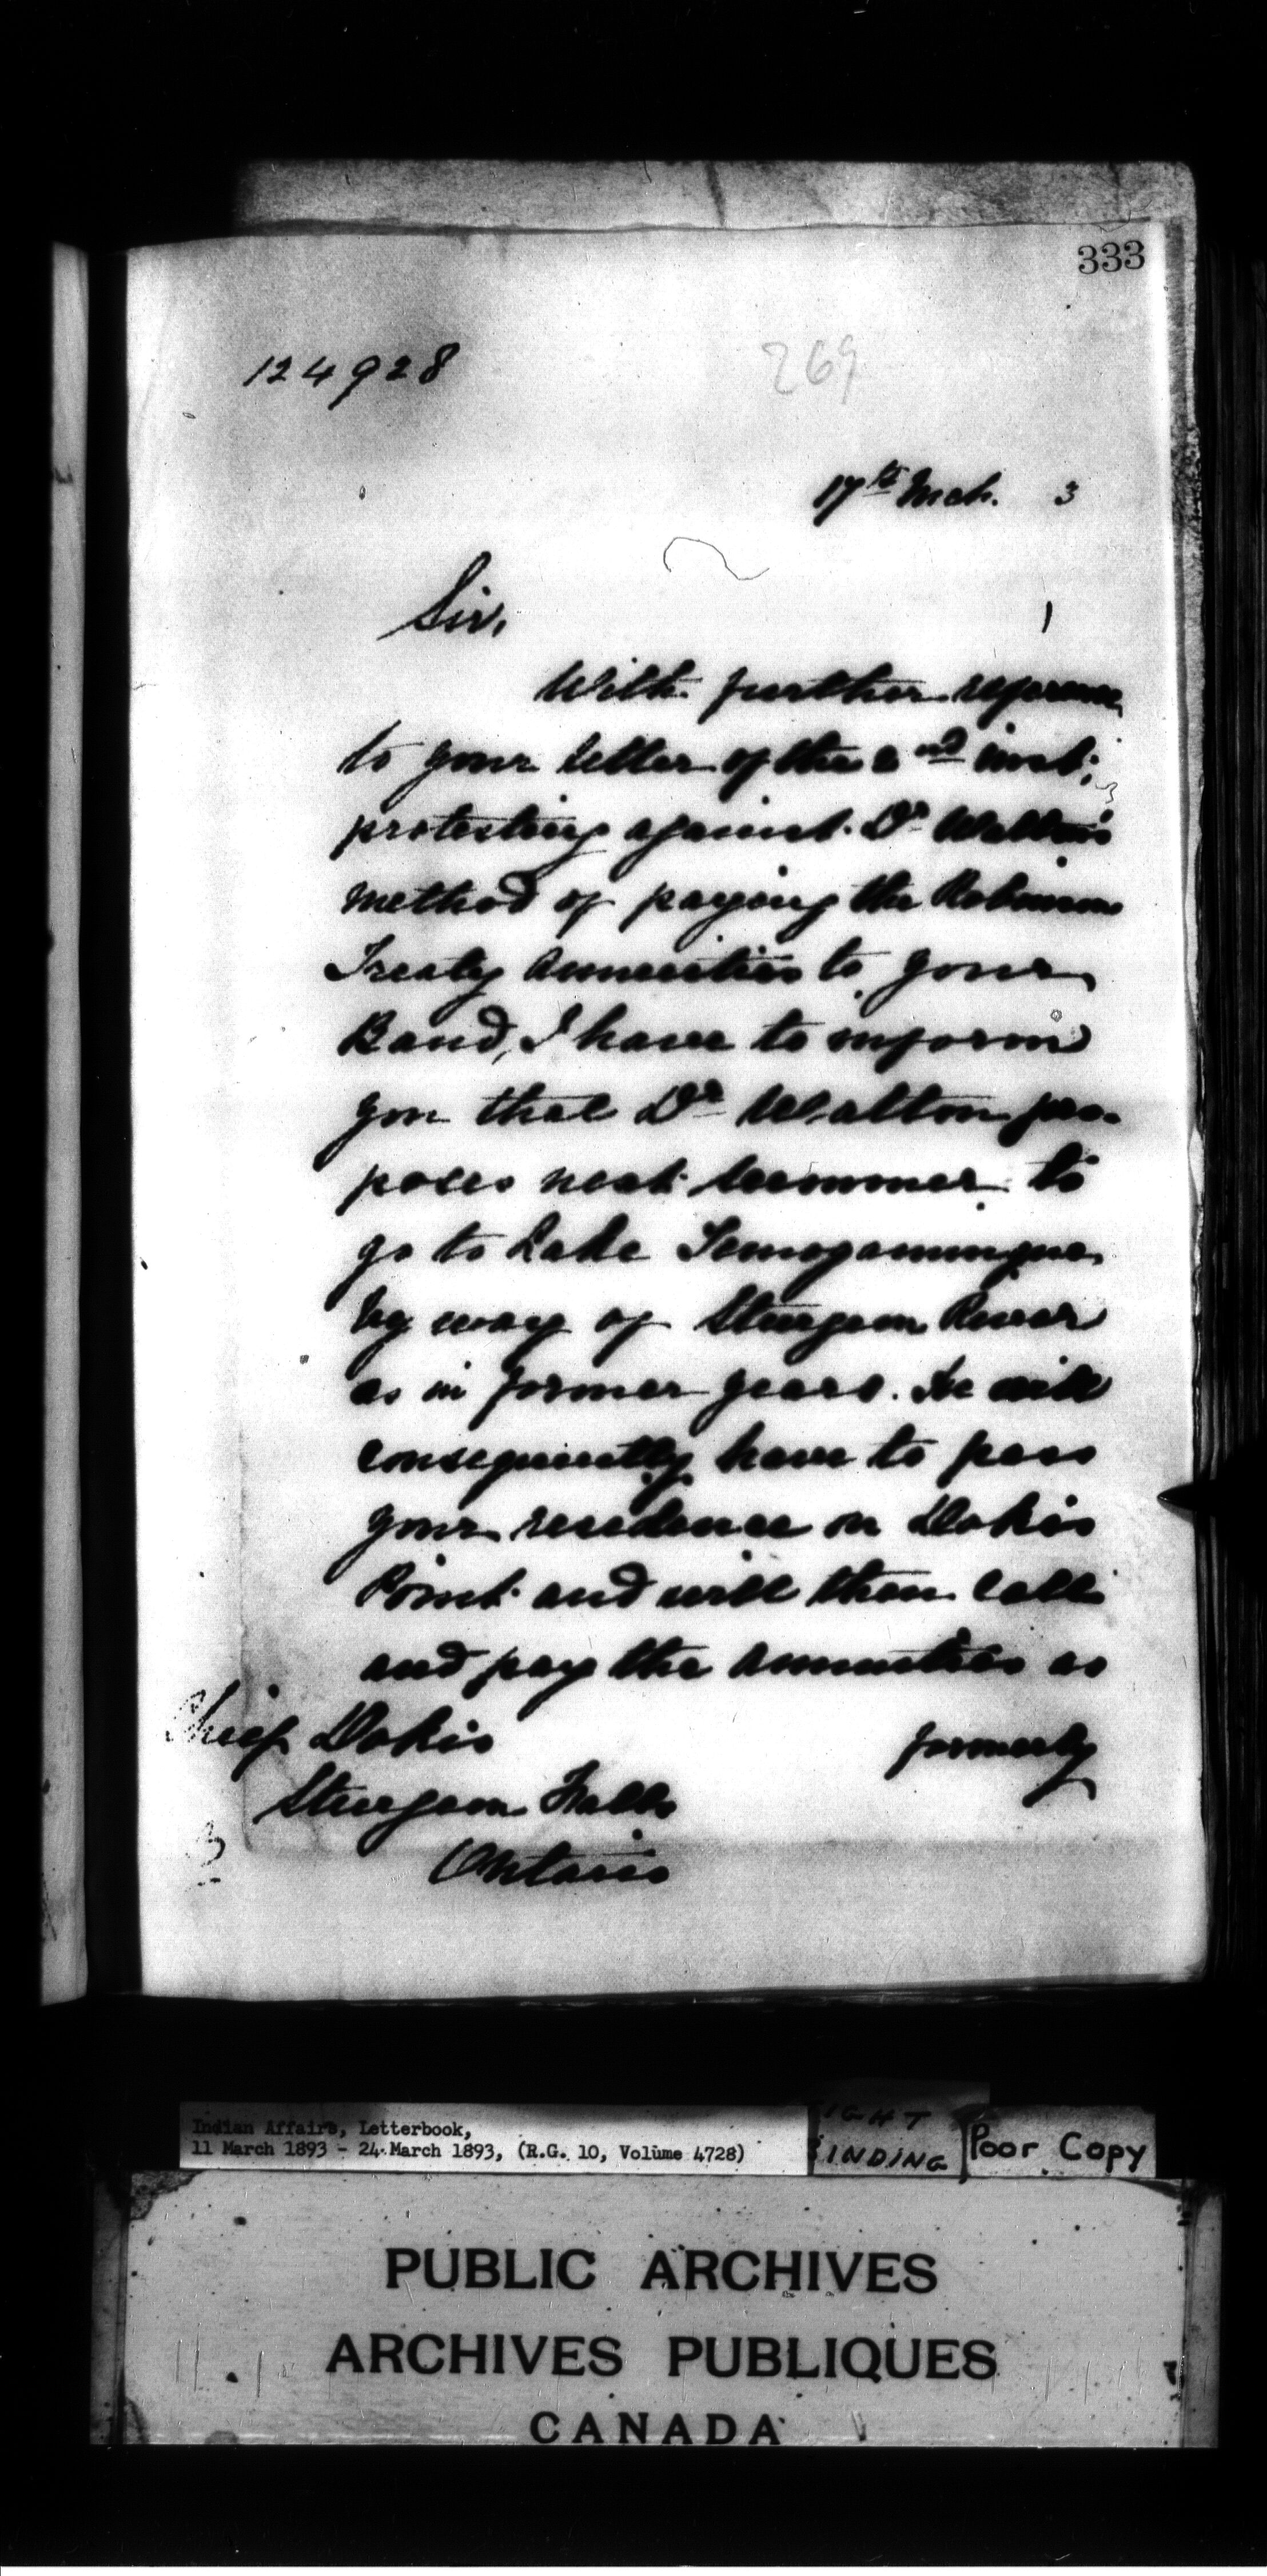 333
124928
269
17th Mch. 3
Sir,
With further reference
to your letter of the 2nd inst:
protesting against Dr Walton's
method of paying the Robinson
Treaty Annuities to your
Band, I have to inform
you that Dr Walton pro-
poses next summer to
go to Lake Temogamingue
by way of Sturgeon River
as in former years. He will
consequently have to pass
your residence on Dokis
Point and will then call
and pay the annuities as
formerly
Chief Dokis
Sturgeon Falls
Ontario
Indian Affairs, Letterbook,
11 March 1893 - 24 March 1893, (R.G. 10, Volume 4728)
IGHT
BINDING
Poor Copy
PUBLIC ARCHIVES
ARCHIVES PUBLIQUES
CANADA